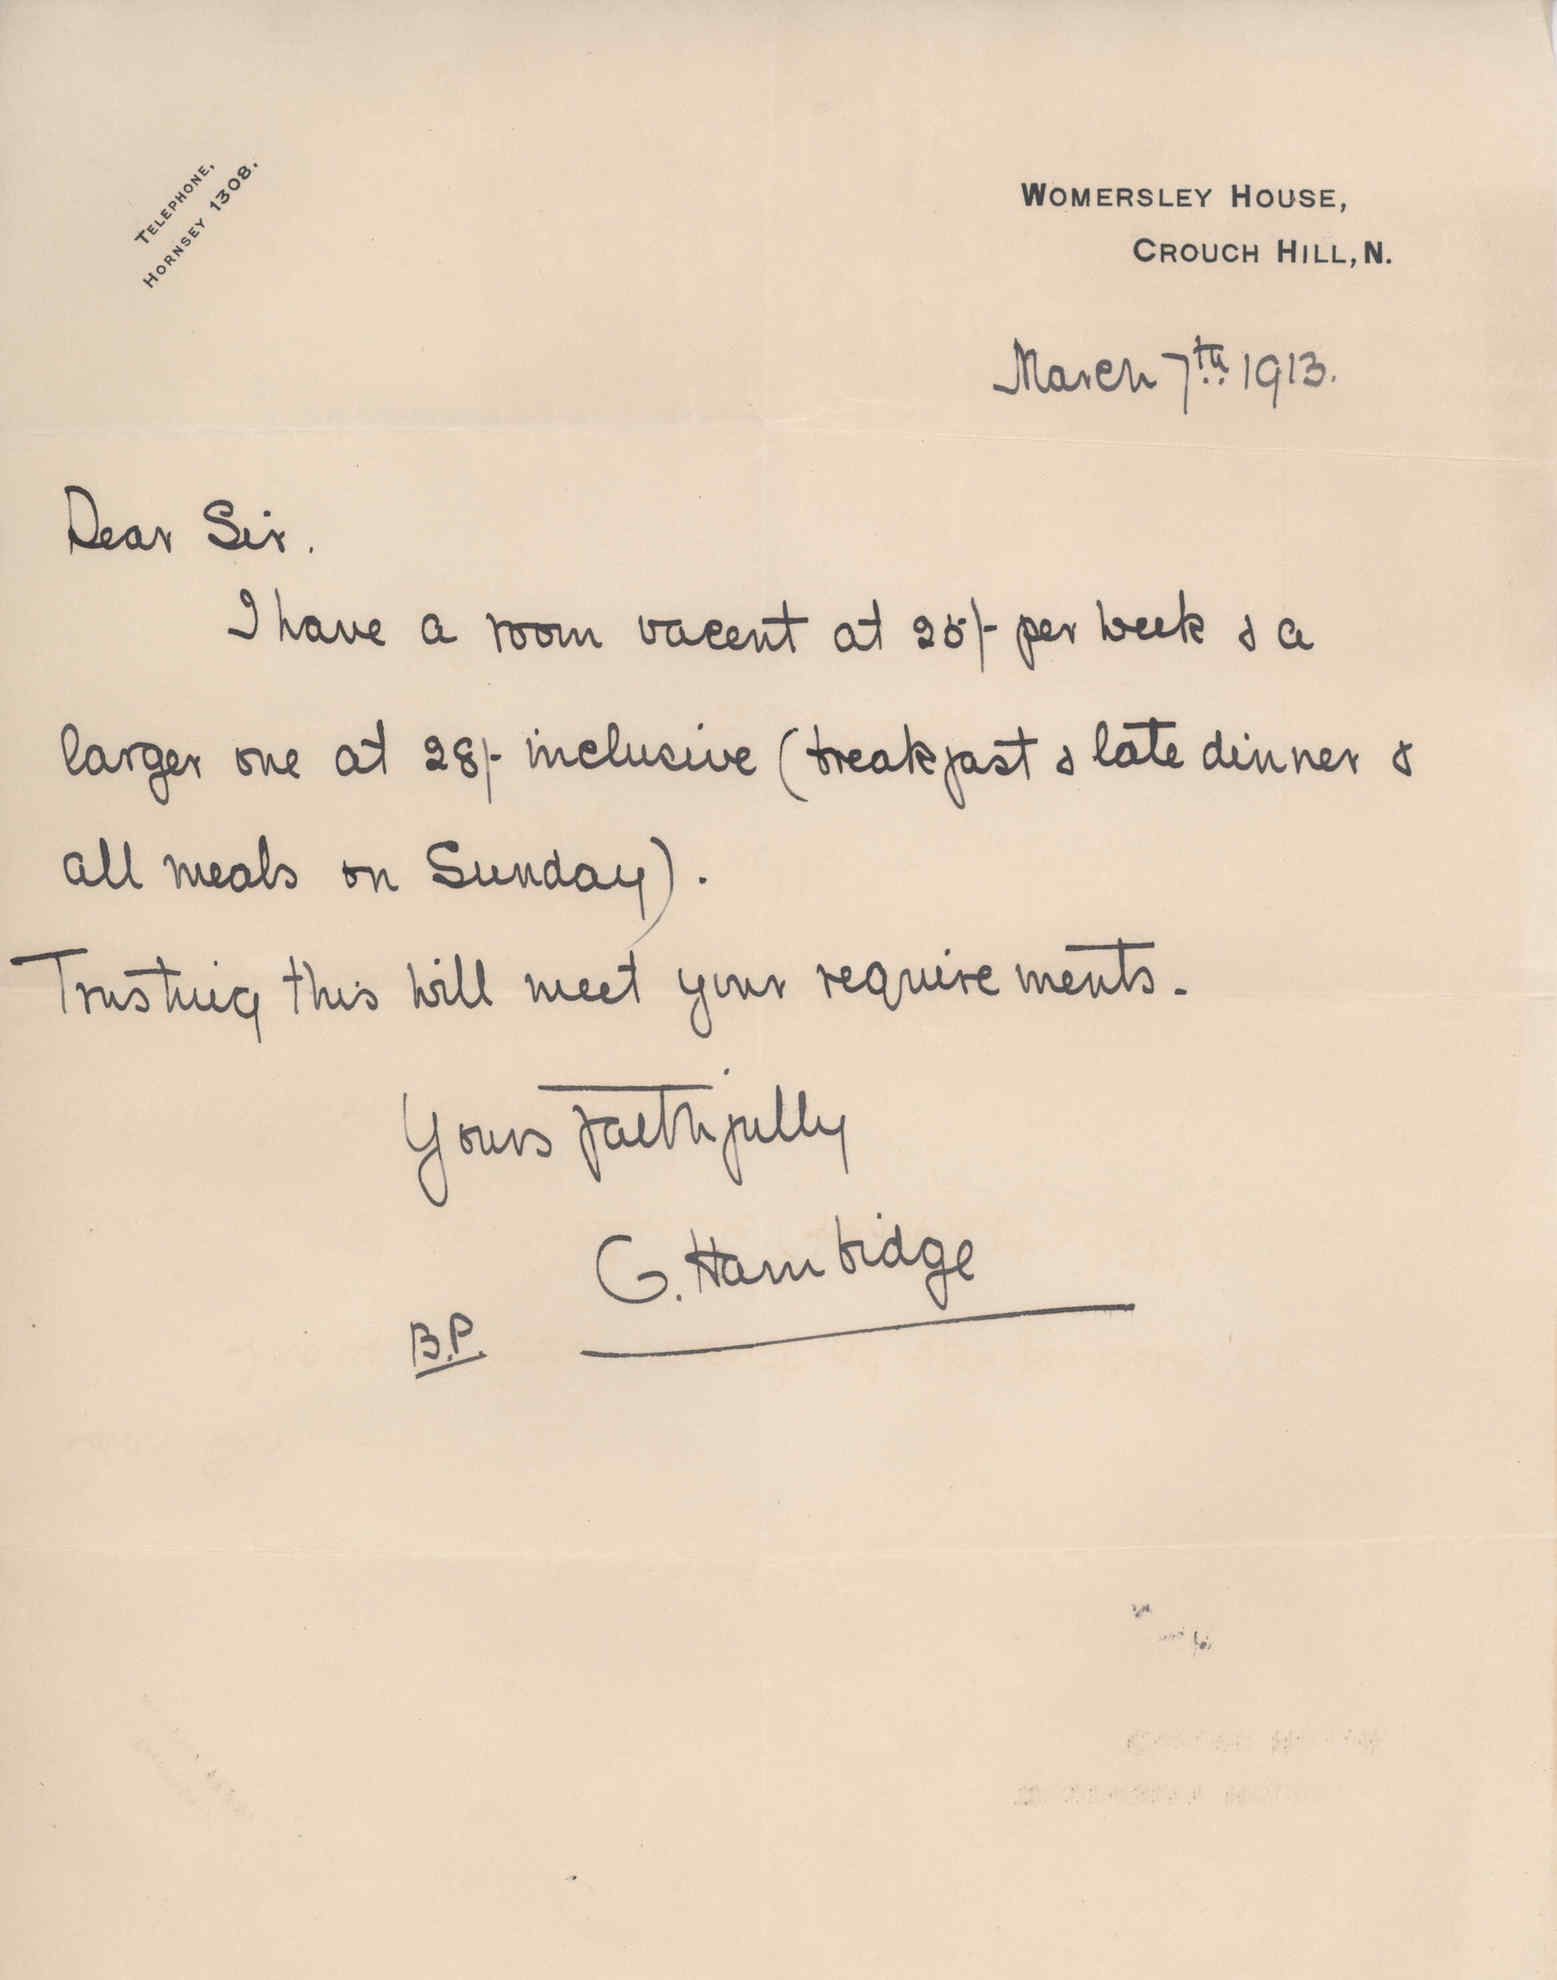 TELEPHONE,
HORNSEY 1308.
WOMERSLEY HOUSE,
CROUCH HILL, N.
March 7th 1913.
Dear Sir.
I have a room vacent at 25/- per week & a
larger one at 28/- inclusive (breakfast & late dinner &
all meals on Sunday).
Trusting this will meet your requirements.
Yours faithfully
G. Hambidge
B.P.